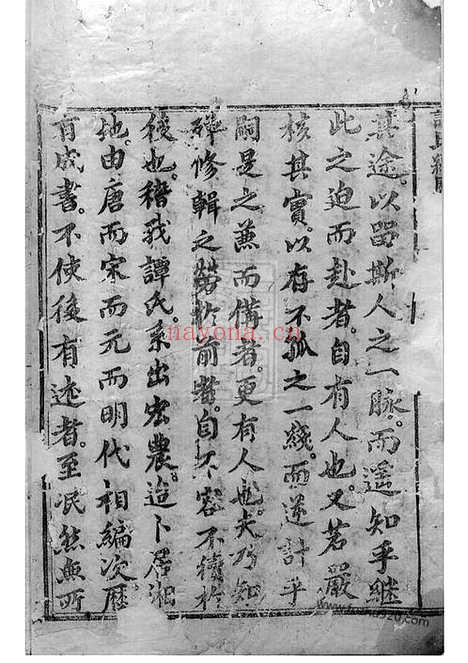 其途。以留斯人之一脉。而遥知乎継
此之迫而赴者。自有人也。又若嚴
核其實。以存不孤之一綫。而逆計乎
嗣是之蕪而備者。更有人也。夫乃知
殫修輯之勞於前者。自不容不續於
後也。稽我譚氏。系出宏農。迨卜居湘
地。由唐而宋而元而明。代相編次。歷
有成書。不使後有述者。至泯然無所
nayona.cn